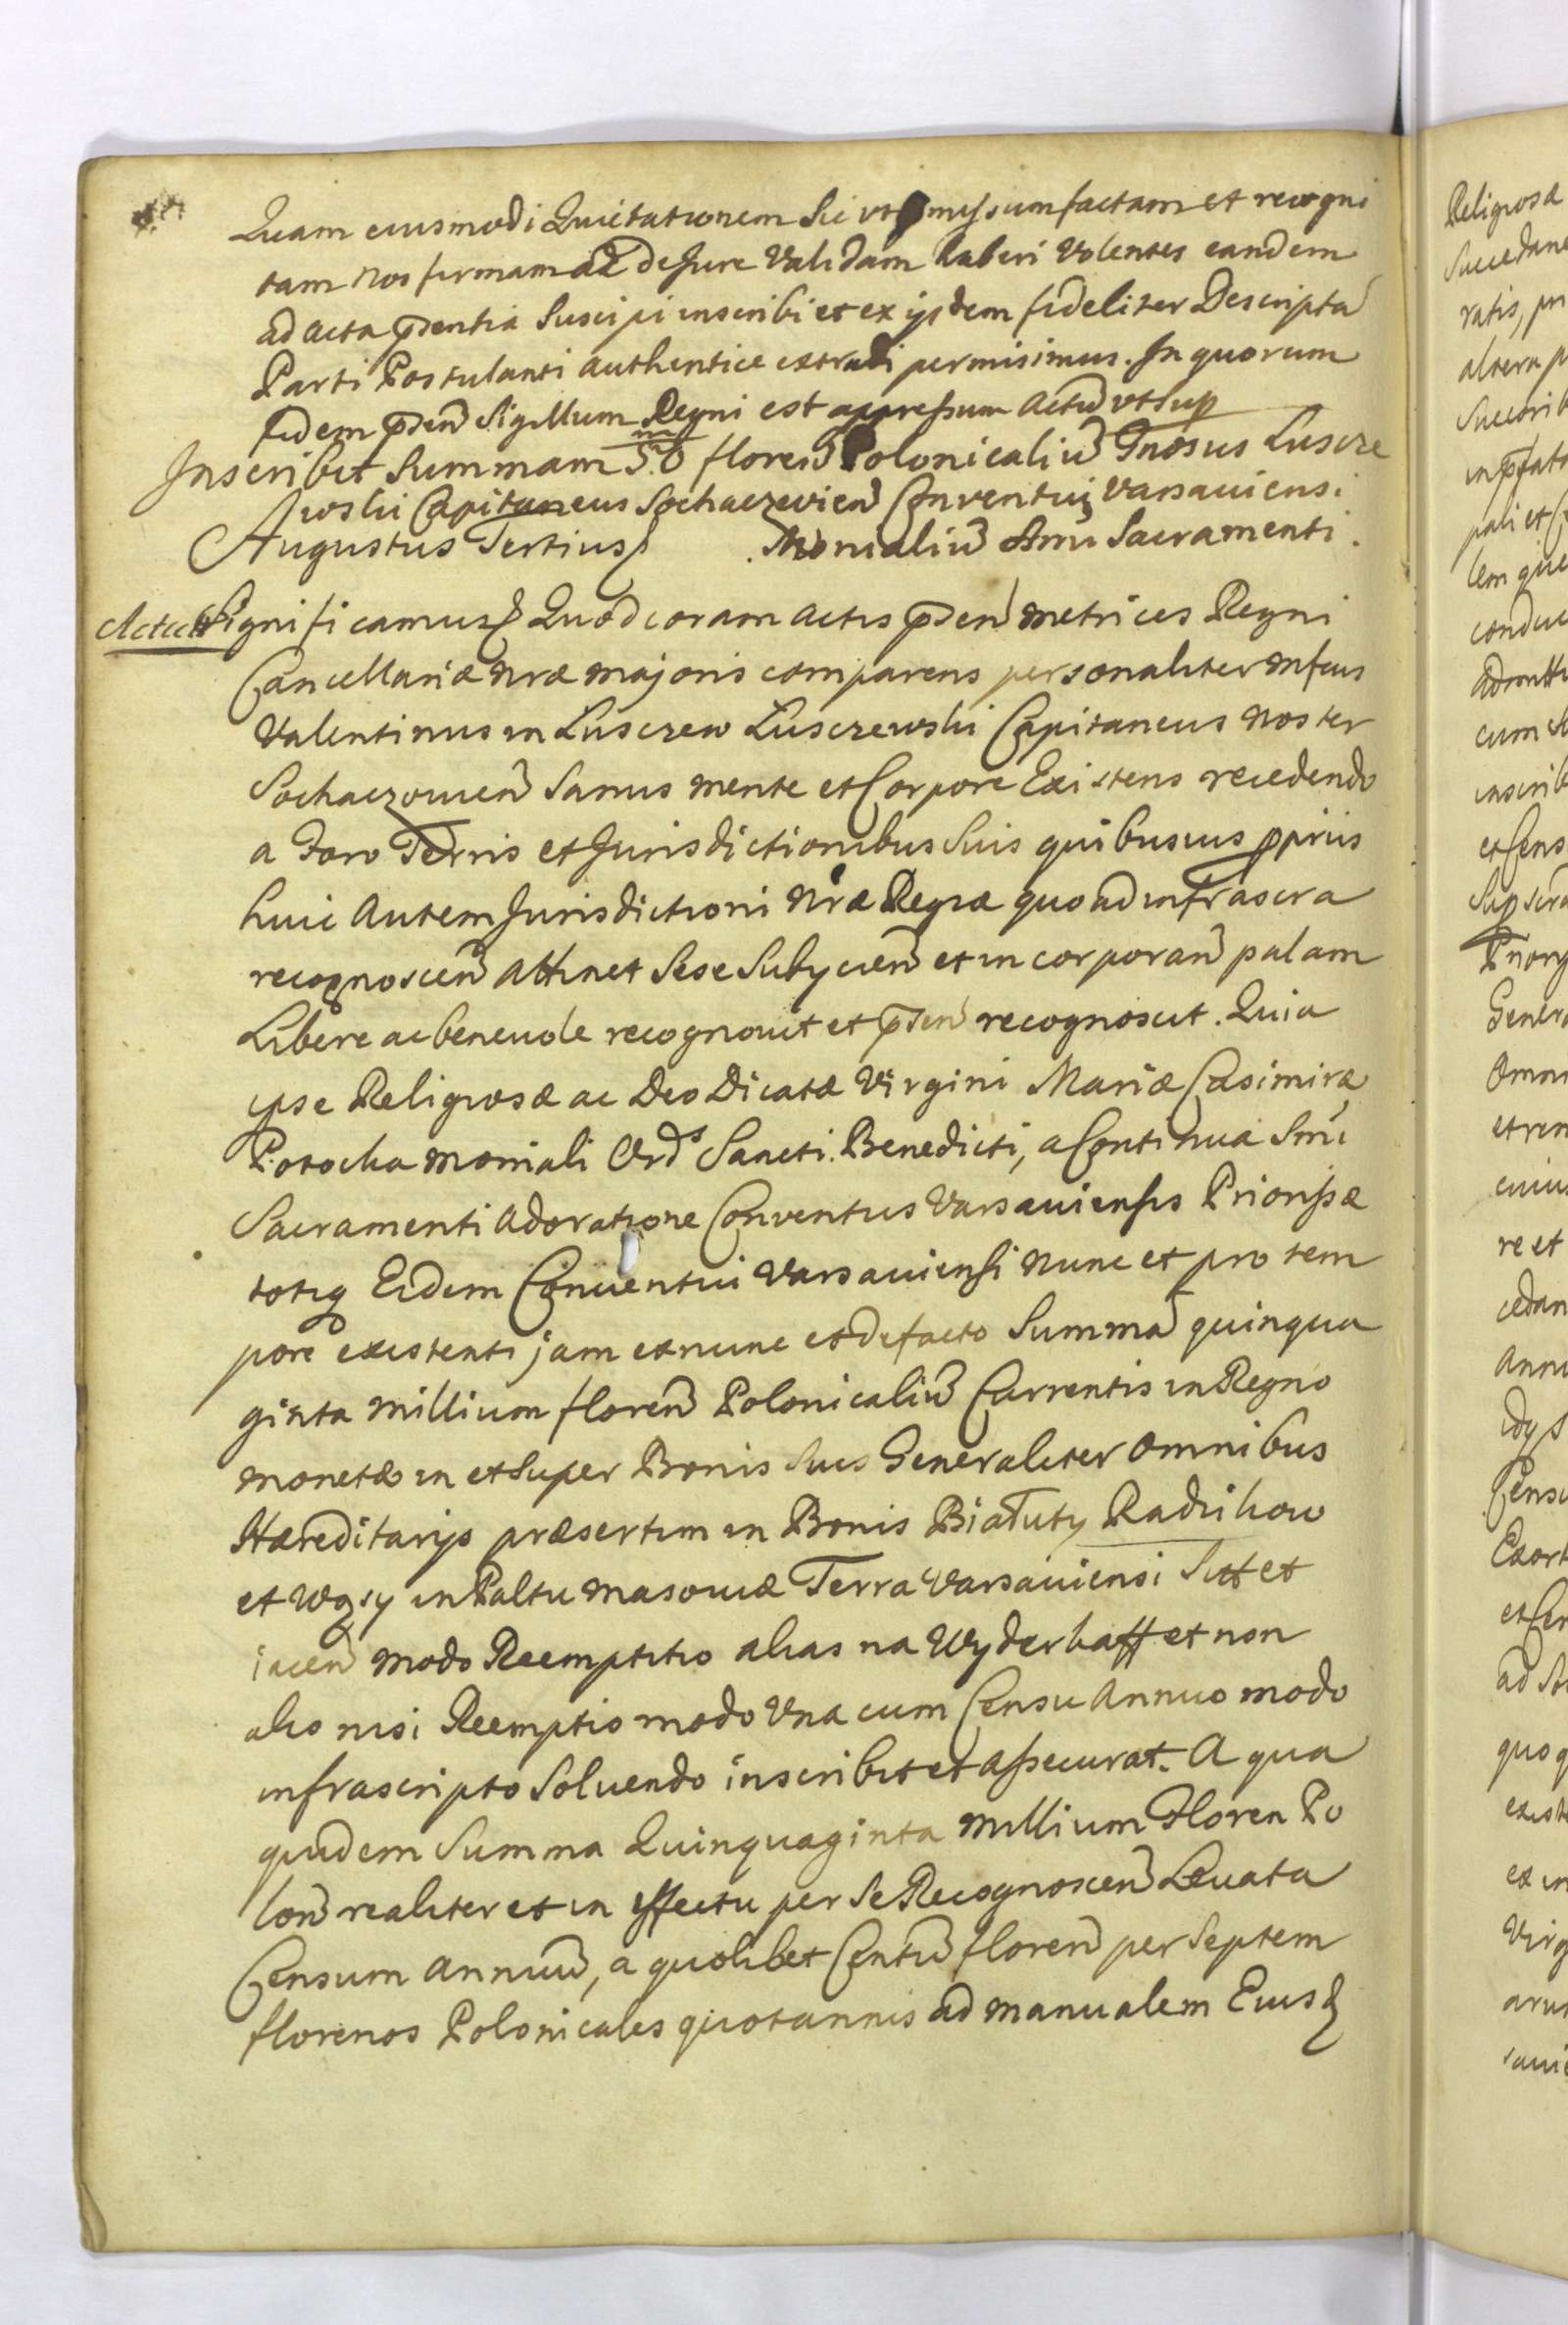 Quam eiusmodi Quietationem Sic vt pmissum factam et recogni
tam Nos firmam ac de Jure Validam haberi Volentes eandem
ad acta psentia Suscipi inscribi et ex ijsdem fideliter Descripta
Parti Postulanti authentice extradi permisimus. In quorum
fidem psen Sigillum Regni est appressum Actu vt Sup
Inscribit Summam 50 m floren Polonicaliu Gnosus Luscze
wski Capitaneus Sochaczevien Conventui Varsauiensi
Augustus Tertius Monialiu Smi Sacramenti.
Actu Significamus Quod coram actis psen Metrices Regni
Cancellariæ Nræ majoris comparens personaliter Mfcus
Valentinus in Luszczew Lusczewski Capitaneus Noster
Sochaczouien Sanus mente et Corpore Existens recedendo
a Foro Terris et Jurisdictionibus Suis quibusuis ppriis
huic Autem Jurisdictioni Nræ Regiæ quo ad infrascra
recognoscen Attinet Sese Subycien et incorporan palam
Libere ac beneuole recognouit et psen recognoscit. Quia
ipse Religiosæ ac Deo Dicatæ Virgini Mariæ Casimiræ
Potocka Moniali Ords Sancti Benedicti, a Continua Smi
Sacramenti Adoratione Conventus Varsauiensis Priorissæ
totiq Eidem Conuentui Varsauiensi nunc et pro tem
pore existenti jam ex nunc et de facto Summa quinqua
ginta Millium floren Polonicaliu Currentis in Regno
monetæ in et Super Bonis Suis Generaliter Omnibus
Hæreditarijs præsertim in Bonis Białuty Radzikow
et Wąsy in Paltu Masouiæ Terra Varsauiensi Sitt et
iacen modo Reemptitio alias na Wyderkaff et non
alio nisi Reemptio modo Vna cum Censu Annuo modo
infrascripto Soluendo inscribit et assecurat. A qua
quidem Summa Quinquaginta Millium Floren Po
lon realiter et in effectu per Se Recognoscen Leuata
Censum annuu, a quolibet Centu floren per Septem
florenos Polonicales quotannis ad manualem Eius
Religiosæ
ratis,
altera
pali et
adm
cum
inscrib
et Cens
re et
Cens
et Cen
ex in
Virg